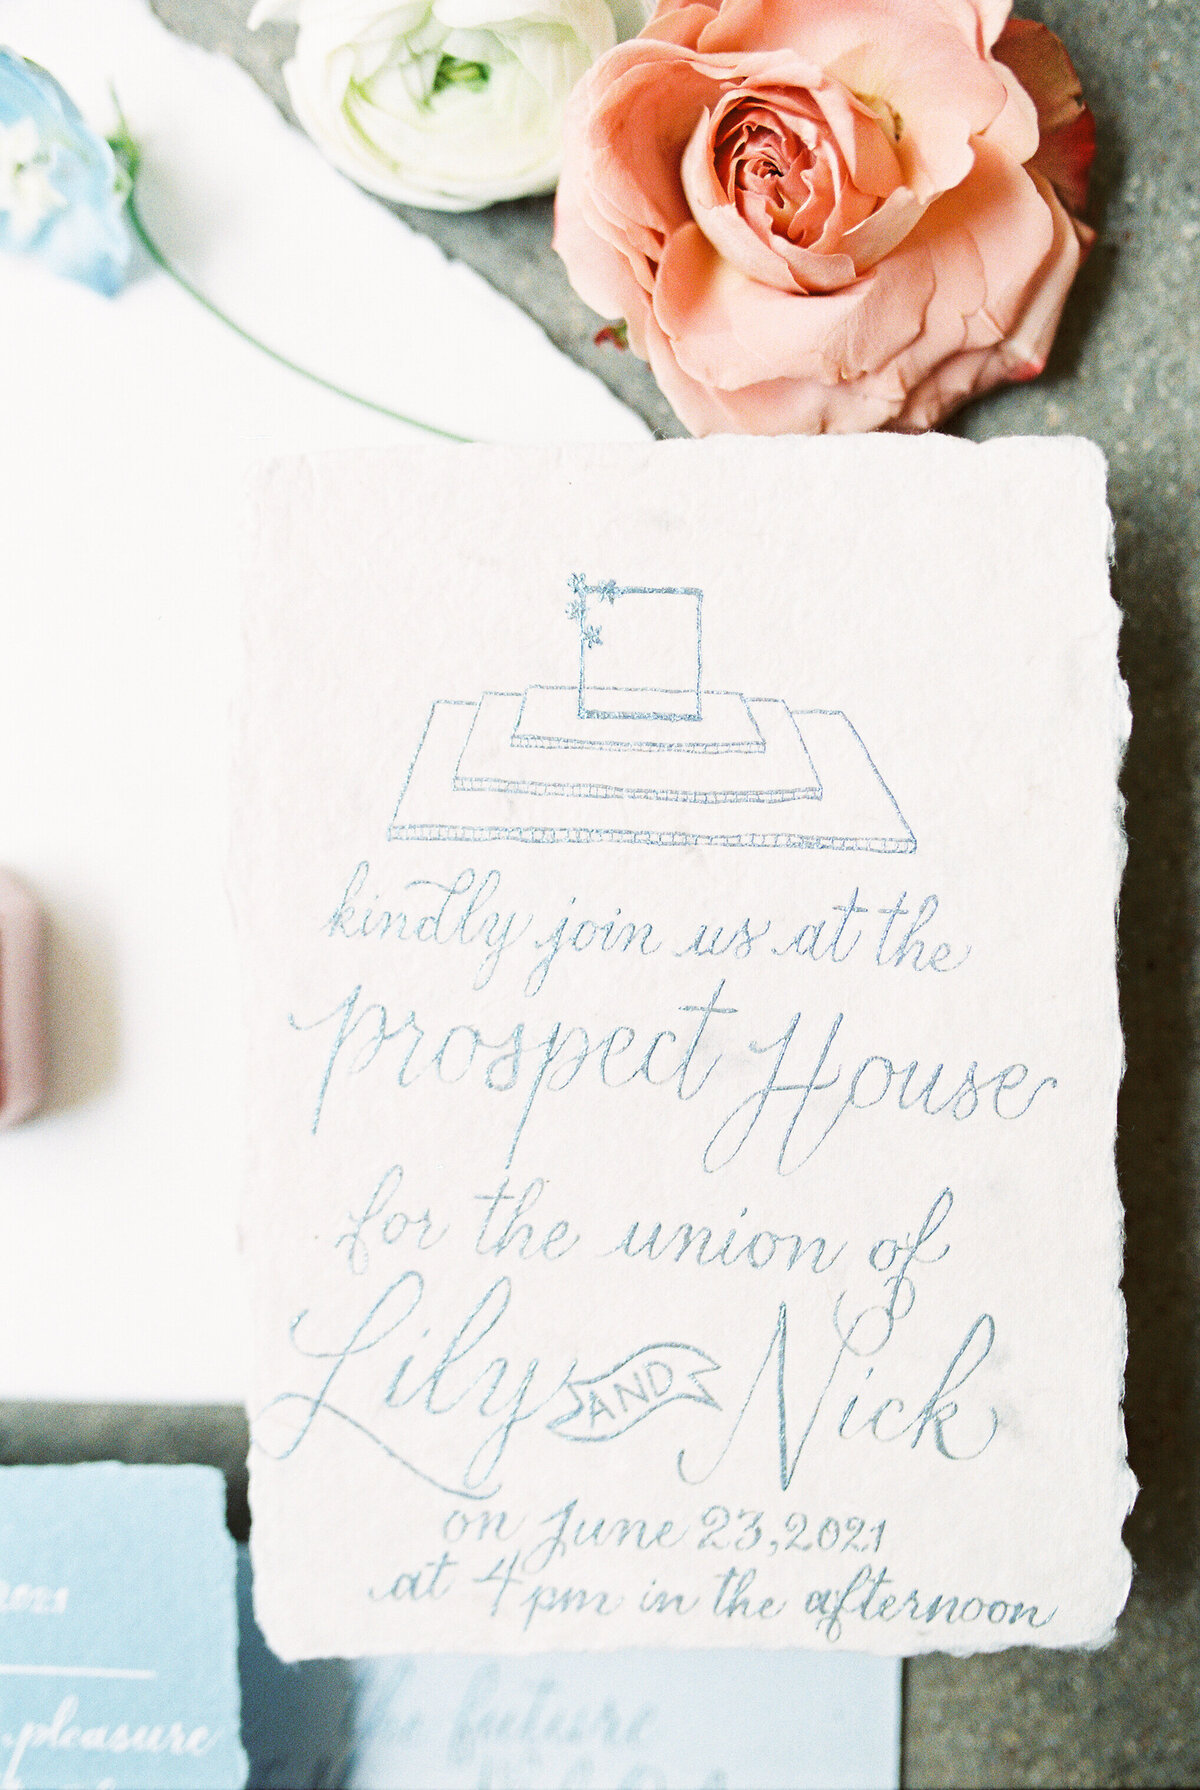 kindly join us at the
prospect House
for the union of
Lily AND Nick
on June 23, 2021
at 4pm in the afternoon
2021
pleasure
the future